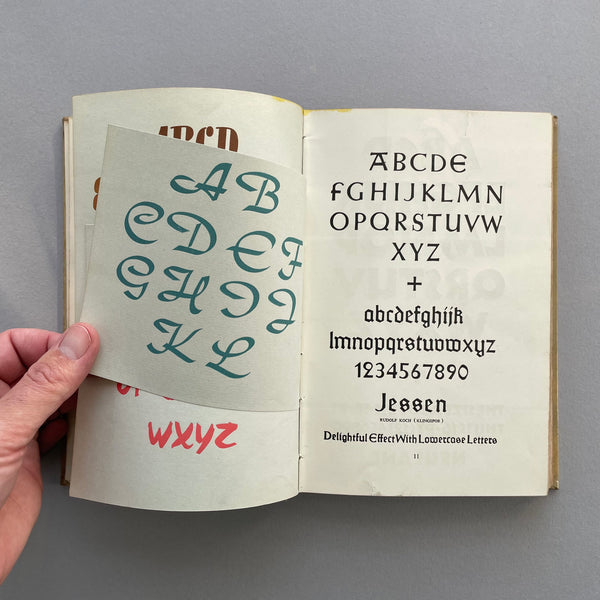 ABCD
A B
C D E F
G H I J
K L
WXYZ
ABCDE
FGHIJKLMN
OPQRSTUVW
XYZ
+
abcdefghijk
lmnopqrstuvwxyz
1234567890
Jessen
RUDOLF KOCH (KLINGSPOR)
Delightful Effect With Lowercase Letters
11